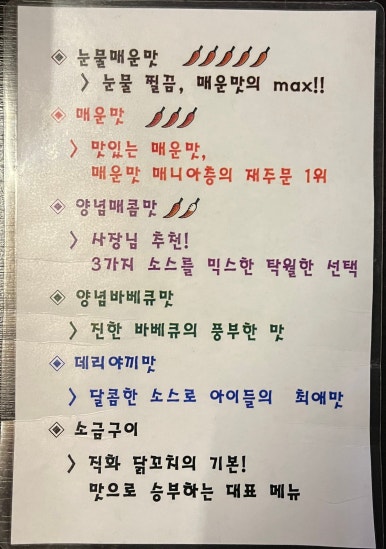 ◈ 눈물매운맛
> 눈물 찔끔, 매운맛의 max!!
◈ 매운맛
> 맛있는 매운맛,
매운맛 매니아층의 재주문 1위
◈ 양념매콤맛
> 사장님 추천!
3가지 소스를 믹스한 탁월한 선택
◈ 양념바베큐맛
> 진한 바베큐의 풍부한 맛
◈ 데리야끼맛
> 달콤한 소스로 아이들의 최애맛
◈ 소금구이
> 직화 닭꼬치의 기본!
맛으로 승부하는 대표 메뉴